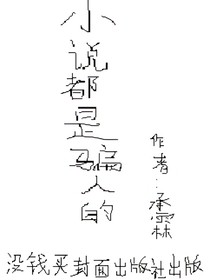 小说都是骗人的
作者：承霖
没钱买封面出版社出版